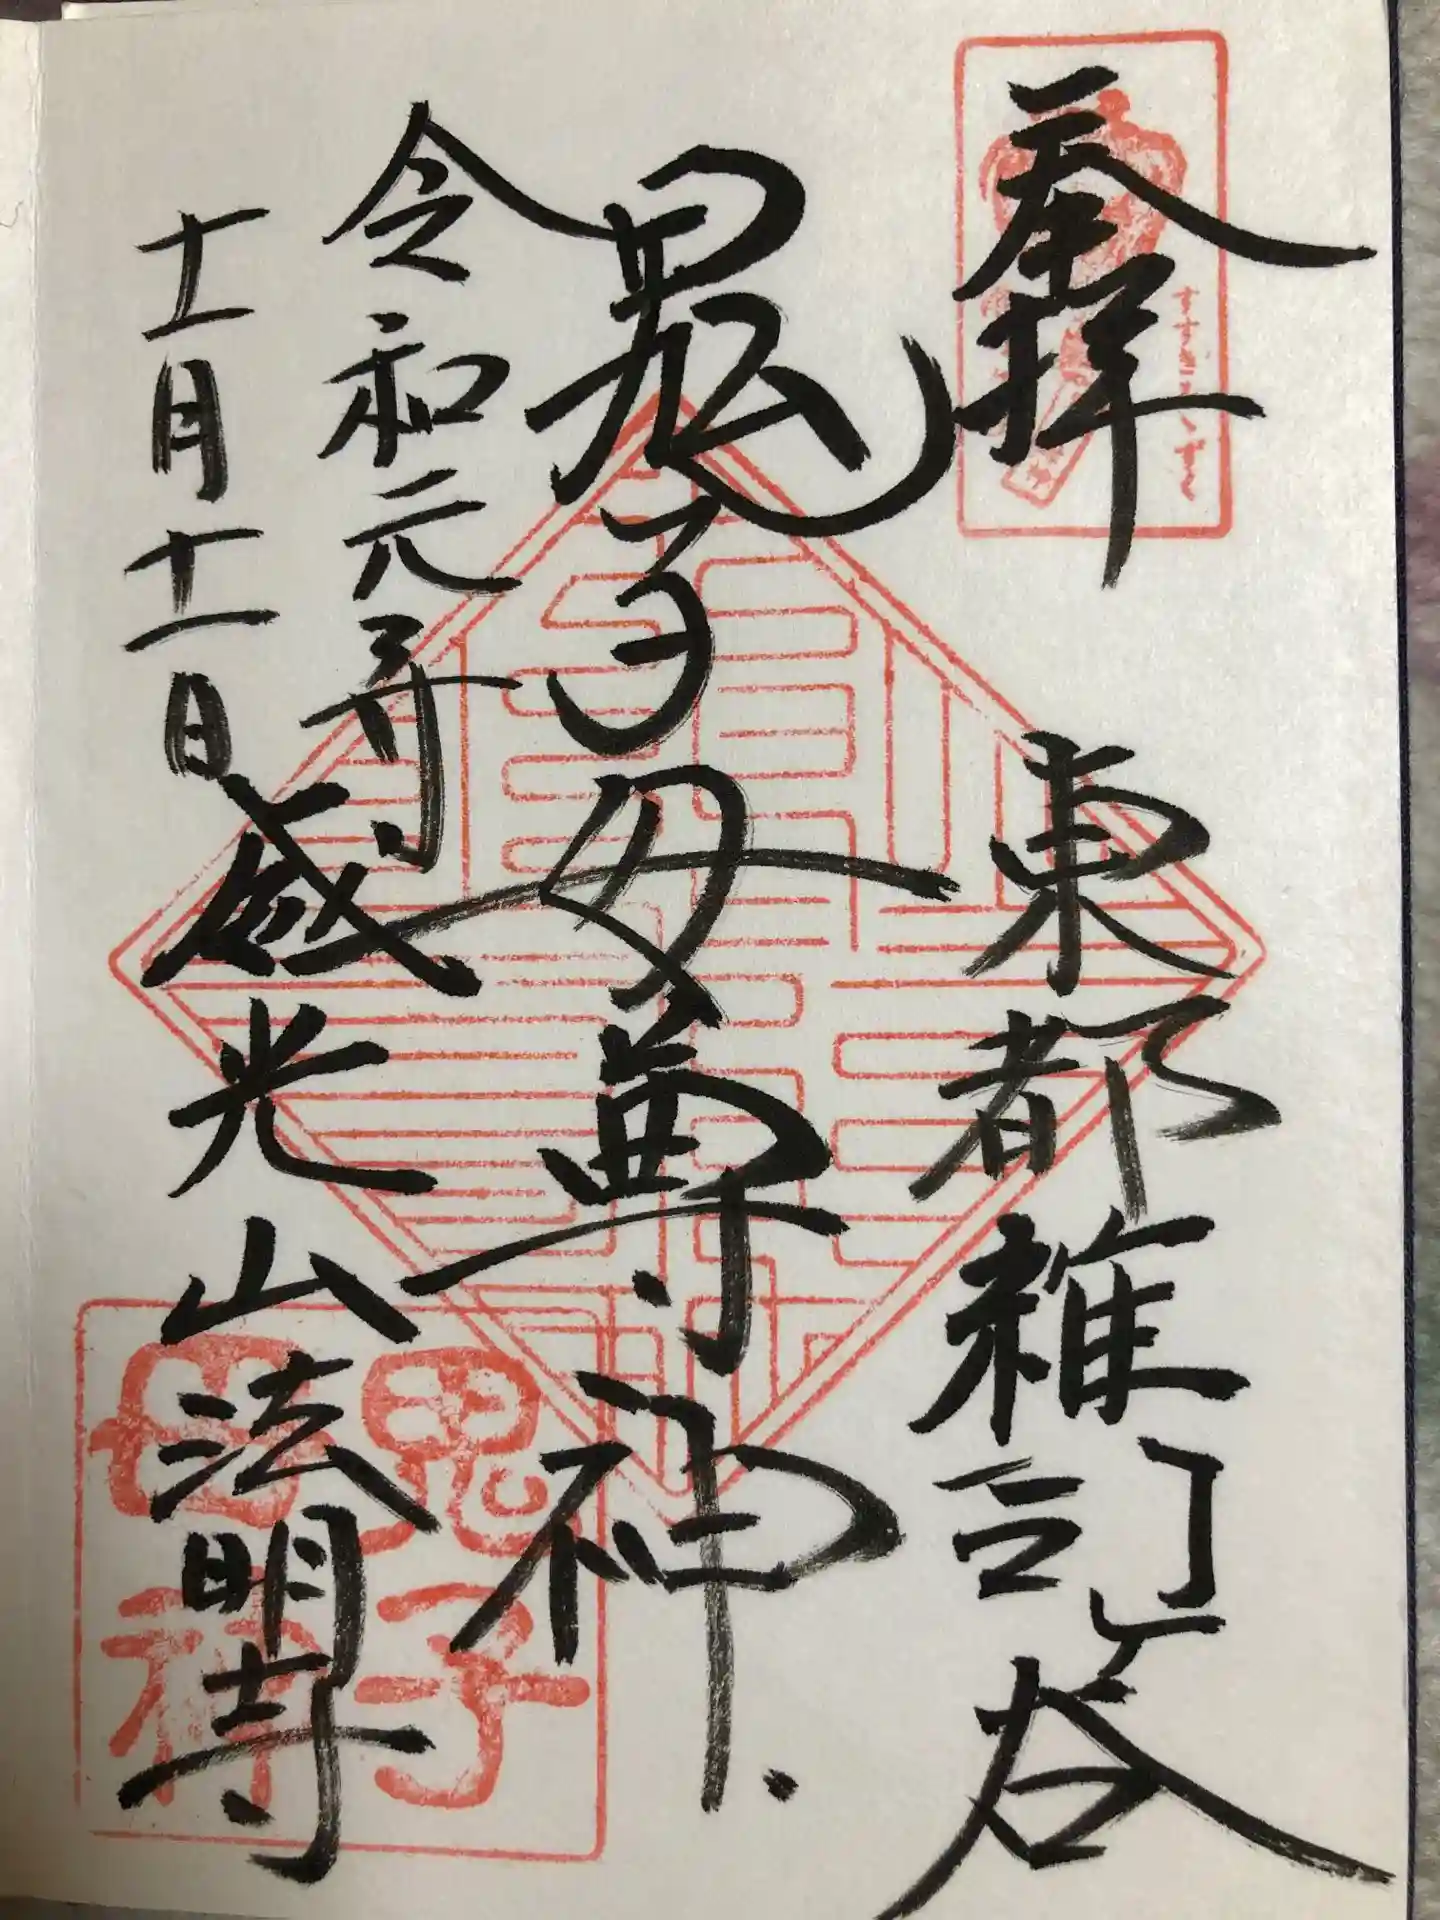 奉拝
東都雑司ヶ谷
鬼子母尊神
令和元年
十一月十一日
威光山法明寺
すすきみゝずく
鬼子
母神